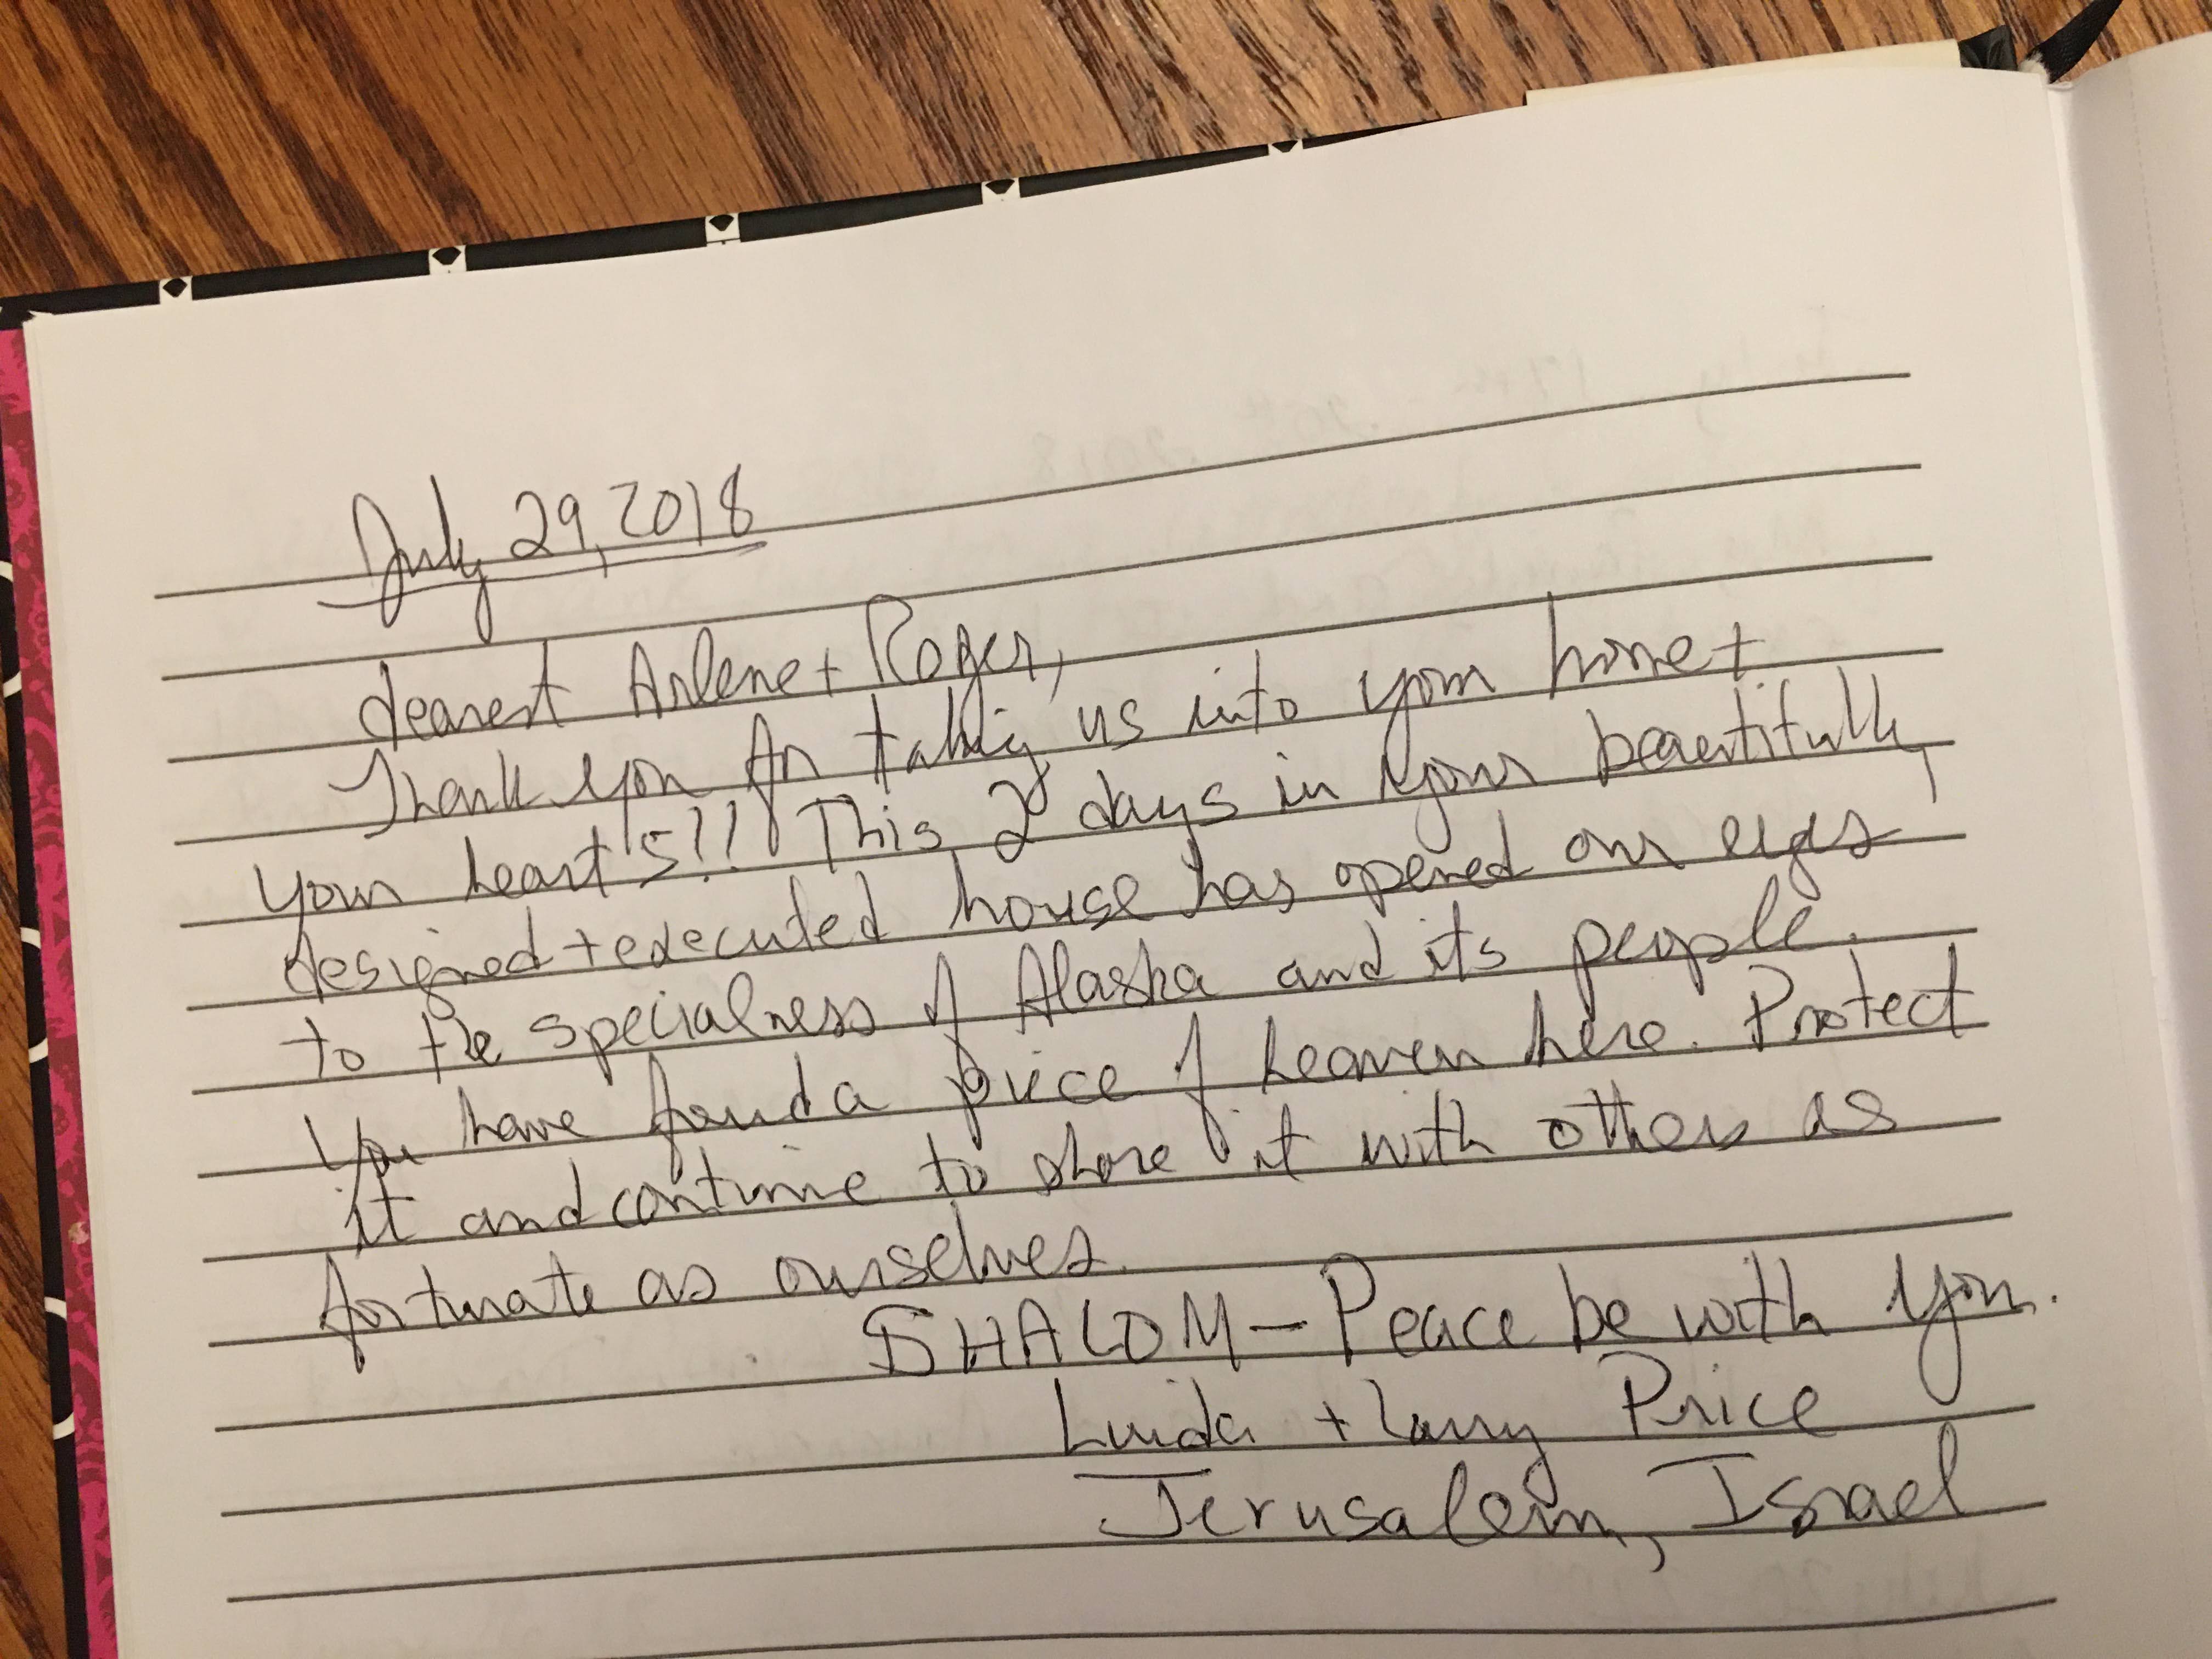 July 29, 2018
dearest Arlene + Roger,
Thank you for taking us into your home +
your heart's!! This 2 days in your beautifully
designed + executed house has opened our eyes
to the specialness of Alaska and its people.
You have found a piece of heaven here. Protect
it and continue to share it with others as
fortunate as ourselves.
SHALOM - Peace be with you.
Linda + Larry Price
Jerusalem, Israel